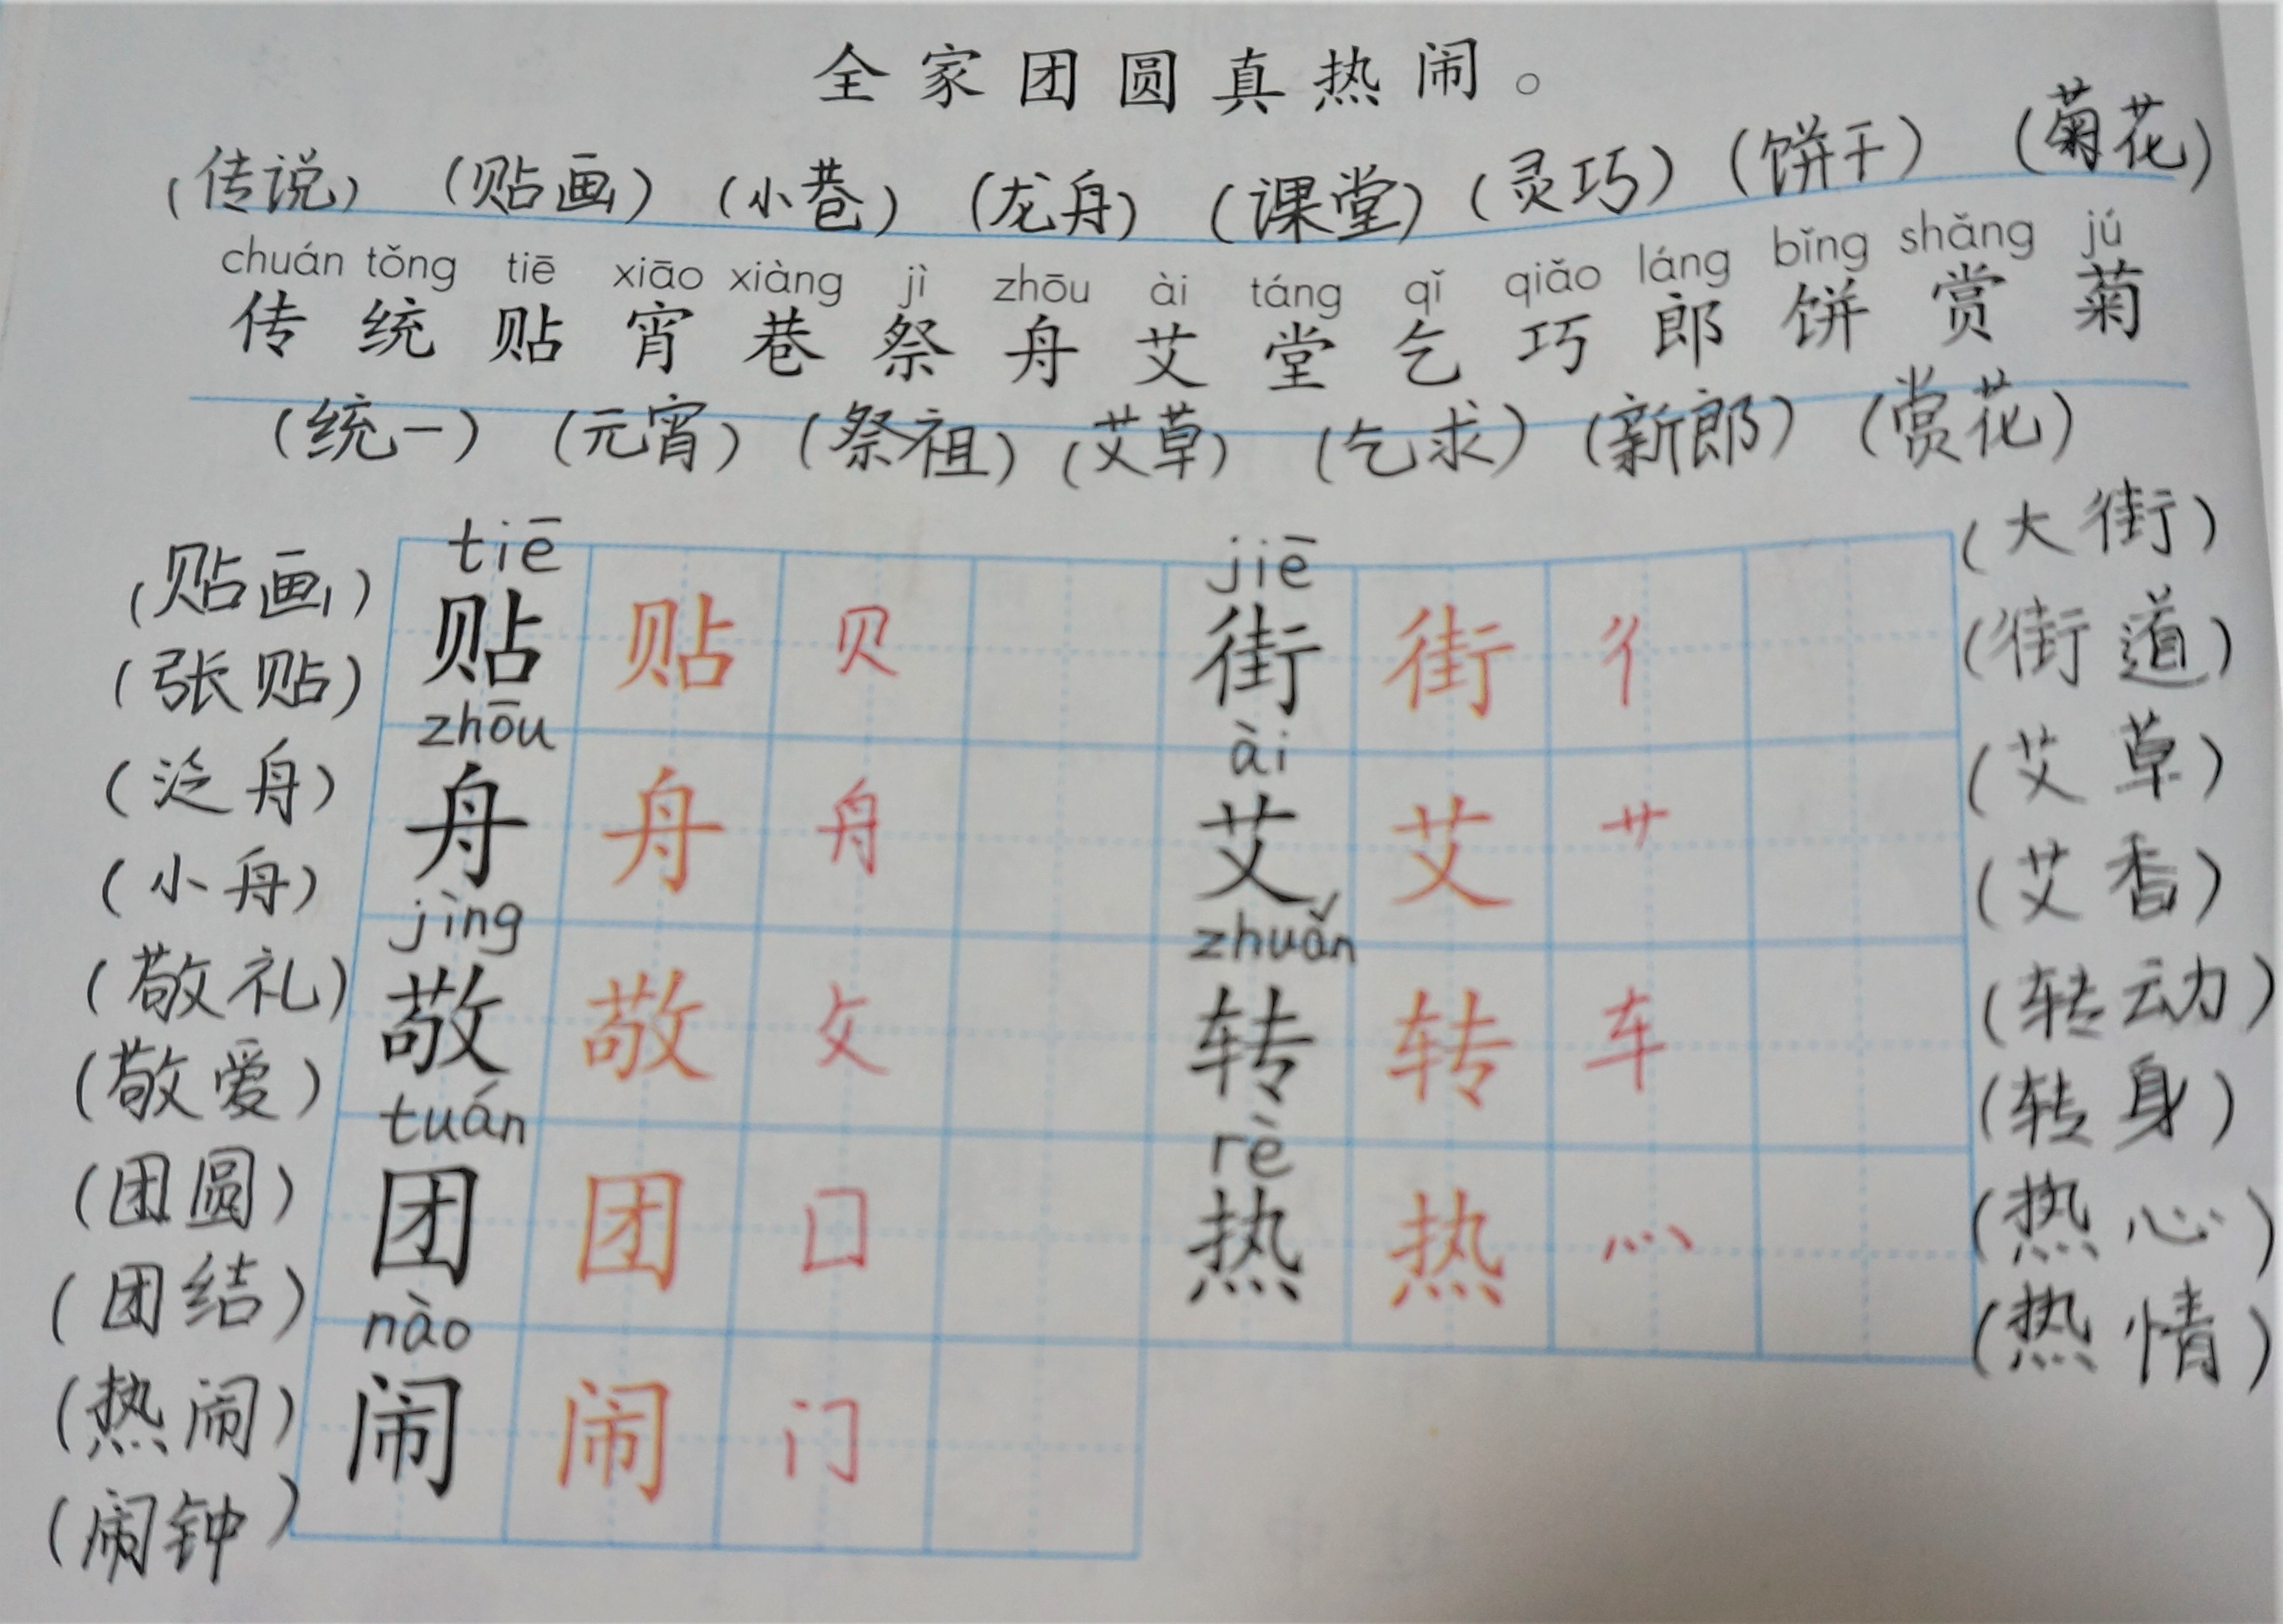 全家团圆真热闹。
(传说) (贴画) (小巷) (龙舟) (课堂) (灵巧) (饼干) (菊花)
chuán tǒng tiē xiāo xiàng jì zhōu ài táng qǐ qiǎo láng bǐng shǎng jú
传 统 贴 宵 巷 祭 舟 艾 堂 乞 巧 郎 饼 赏 菊
(统一) (元宵) (祭祖) (艾草) (乞求) (新郎) (赏花)
tiē jiē (大街)
(贴画) 贴 贴 贝 街 街 彳 (街道)
(张贴)
zhōu ài (艾草)
(泛舟) 舟 舟 舟 艾 艾 艹 (艾香)
(小舟)
jìng zhuǎn
(敬礼) 敬 敬 攵 转 转 车 (转动)
(敬爱) (转身)
tuán rè
(团圆) 团 团 囗 热 热 灬 (热心)
(团结) (热情)
nào
(热闹) 闹 闹 门
(闹钟)